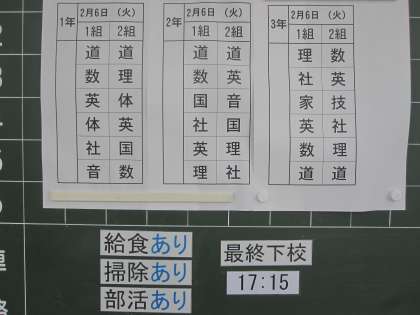 1年 2月6日 (火)
1組 2組
道 道
数 理
英 体
体 英
社 国
音 数
2年 2月6日 (火)
1組 2組
道 道
数 英
国 音
社 国
英 理
理 社
3年 2月6日 (火)
1組 2組
理 数
社 英
家 技
英 社
数 理
道 道
給食あり
掃除あり
部活あり
最終下校
17:15